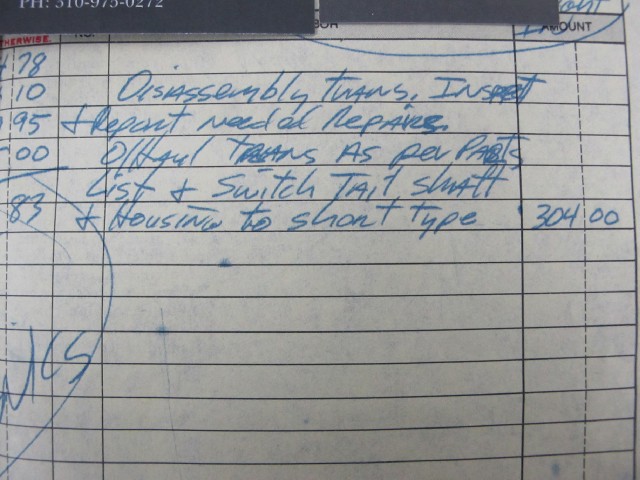 PH: 310-975-0272
THERWISE. NO. AMOUNT
78
10 Disassembly trans, Inspect
95 + Report needed Repairs
00 O/Haul TRANS As per PARTS
List + Switch Tail shaft
83 + Housing to short type 304 00